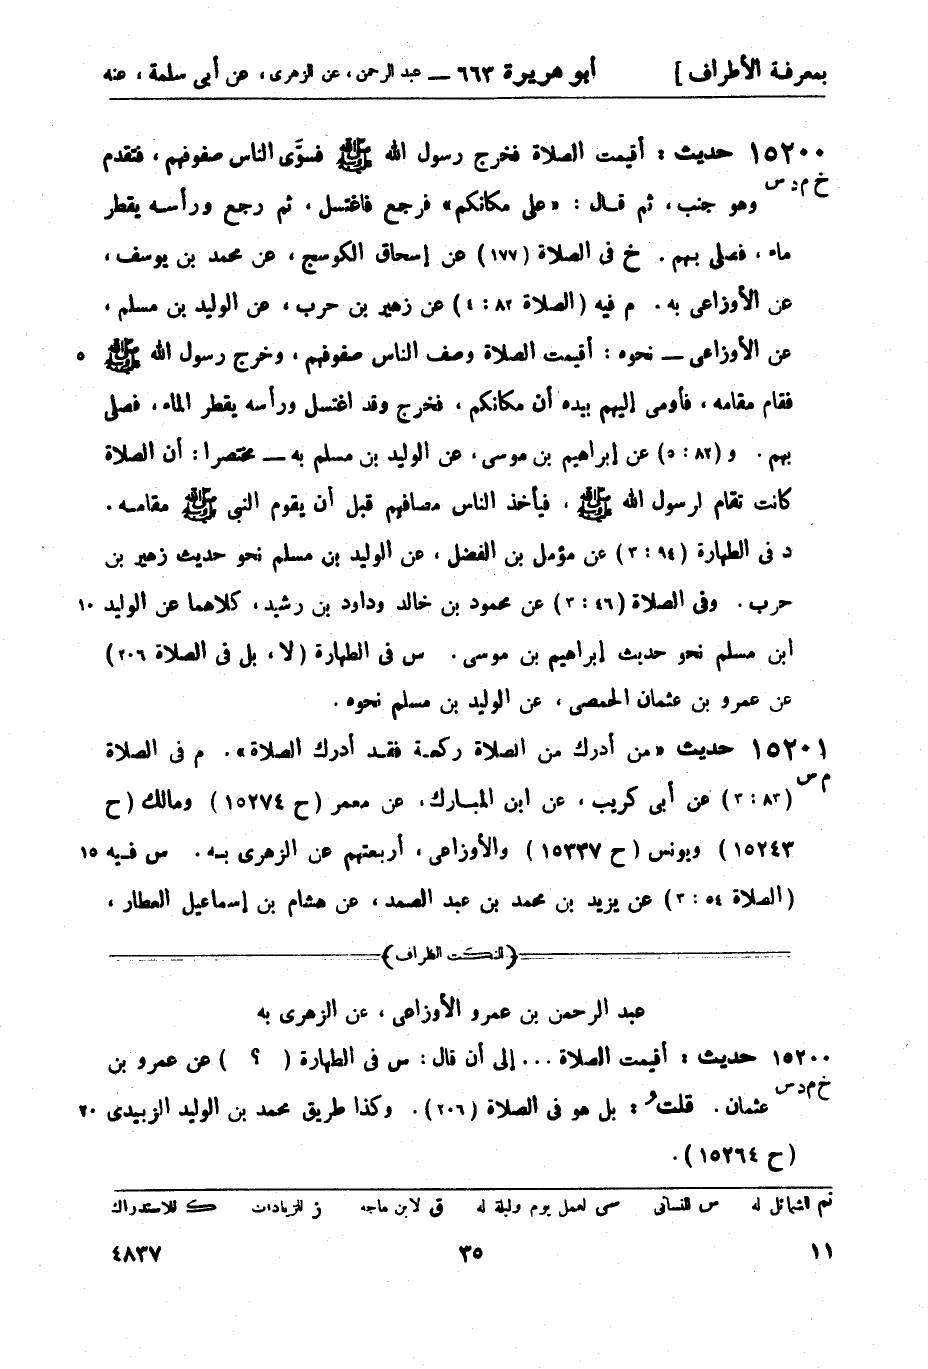 بمعرفة الأطراف] أبو هريرة ٦٦٣ — عبد الرحمن، عن الزهرى، عن أبى سلمة، عنه
١٥٢٠٠ حديث: أقيمت الصلاة فخرج رسول الله ﷺ فسوَّى الناس صفوفهم، فتقدم
خ م د س
وهو جنب، ثم قال: «على مكانكم» فرجع فاغتسل، ثم رجع ورأسه يقطر
ماء، فصلى بهم. خ فى الصلاة (١٧٧) عن إسحاق الكوسج، عن محمد بن يوسف،
عن الأوزاعى به. م فيه (الصلاة ٨٢: ٤) عن زهير بن حرب، عن الوليد بن مسلم،
عن الأوزاعى — نحوه: أقيمت الصلاة وصف الناس صفوفهم، وخرج رسول الله ﷺ ٥
فقام مقامه، فأومى إليهم بيده أن مكانكم، فخرج وقد اغتسل ورأسه يقطر الماء، فصلى
بهم. و (٨٢: ٥) عن إبراهيم بن موسى، عن الوليد بن مسلم به — مختصرا: أن الصلاة
كانت تقام لرسول الله ﷺ، فيأخذ الناس مصافهم قبل أن يقوم النبى ﷺ مقامه.
د فى الطهارة (٩٤: ٣) عن مؤمل بن الفضل، عن الوليد بن مسلم نحو حديث زهير بن
حرب. وفى الصلاة (٤٦: ٣) عن محمود بن خالد وداود بن رشيد، كلاهما عن الوليد ١٠
ابن مسلم نحو حديث إبراهيم بن موسى. س فى الطهارة (لا، بل فى الصلاة ٢٠٦)
عن عمرو بن عثمان الحمصى، عن الوليد بن مسلم نحوه.
١٥٢٠١ حديث «من أدرك من الصلاة ركعة فقد أدرك الصلاة». م فى الصلاة
م س
(٨٣: ٣) عن أبى كريب، عن ابن المبارك، عن معمر (ح ١٥٢٧٤) ومالك (ح
١٥٢٤٣) ويونس (ح ١٥٣٣٧) والأوزاعى، أربعتهم عن الزهرى به. س فيه ١٥
(الصلاة ٥٤: ٣) عن يزيد بن محمد بن عبد الصمد، عن هشام بن إسماعيل العطار،
(النكت الظراف)
عبد الرحمن بن عمرو الأوزاعى، عن الزهرى به
١٥٢٠٠ حديث: أقيمت الصلاة ... إلى أن قال: س فى الطهارة ( ؟ ) عن عمرو بن
خ م د س
عثمان. قلتُ: بل هو فى الصلاة (٢٠٦). وكذا طريق محمد بن الوليد الزبيدى ٢٠
(ح ١٥٢٦٤).
تم الشمائل له س للنسائى سى لعمل يوم وليلة له ق لابن ماجه ز للزيادات ك للاستدراك
١١ ٣٥ ٤٨٣٧